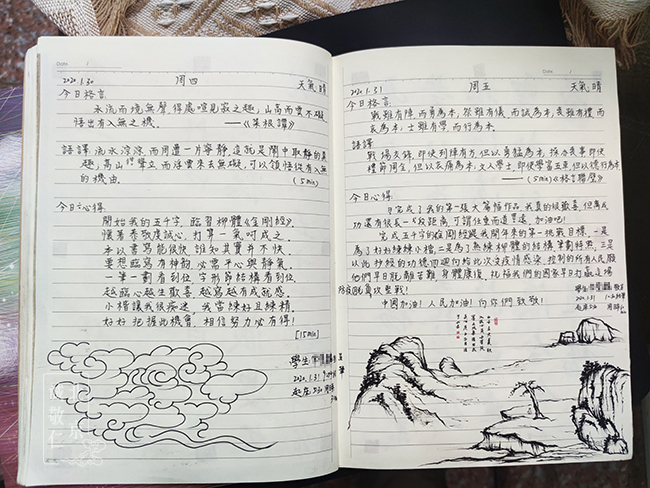 Date. /
2020.1.30 周四 天氣 晴
今日格言
水流而境無聲,得處喧見寂之趣,山高而雲不礙,
悟出有入無之機. ——《菜根譚》
語譯 流水淙淙,而周遭一片寧靜,這就是鬧中取靜的真
趣,高山
而浮雲來去無礙,可以領悟從有入無
的機由. (5min)
今日心得
開始我的五千字,臨習柳體《金剛經》
懷著恭敬虔誠心,打算一氣呵成之.
本以書寫能很快 誰知其實并不快
要想臨寫有神韻 必需平心與靜氣.
一筆一劃看到位,字形節結構看到位.
越臨心越生歡喜 越寫越有成就感.
小楷讓我很痴迷 我當練好且練精.
好好把握此機會,相信努力必有得!
[15min]
學生
2020.1.31
Date. /
2020.1.31 周五 天氣 晴
今日格言
戰雖有陣,而勇為本,然雖有儀,而誠為本,喪雖有禮,而
哀為本,士雖有學,而行為本.
語譯
戰場交鋒,即使列陣有方,但以勇猛為本,
禮節周全,但以哀痛為本,文人學士,即使學富五車,但以德行為本.
(5min)《格言聯璧》
今日心得
完成了我的第一張大篇幅作品,我真的很歡喜,但離成
功還有很長一段距離,可謂任重而道遠,加油吧!
完成五千字的金剛經為
為了好好練練小楷,二是為了熟練柳體的結構筆劃特點,三是
以此抄經的功德回向給此次支疫情感染,控制的所有人民願
他們早日脫離苦難,身體康復,祝祷我們的國家早日打贏這場
防疫阻擊攻堅戰!
中國加油!人民加油!向你們致敬!
學生
2020.1.31